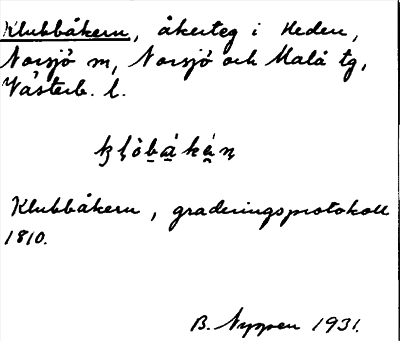 Klubbåkern, åkerteg i Heden,
Norsjö m, Norsjö och Malå tg,
Västerb. l.
Klubbåkern, graderingsprotokoll
1810.
B. Nyppen 1931.